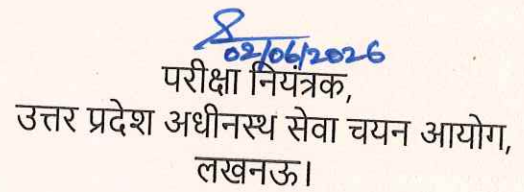 02/06/2026
परीक्षा नियंत्रक,
उत्तर प्रदेश अधीनस्थ सेवा चयन आयोग,
लखनऊ।